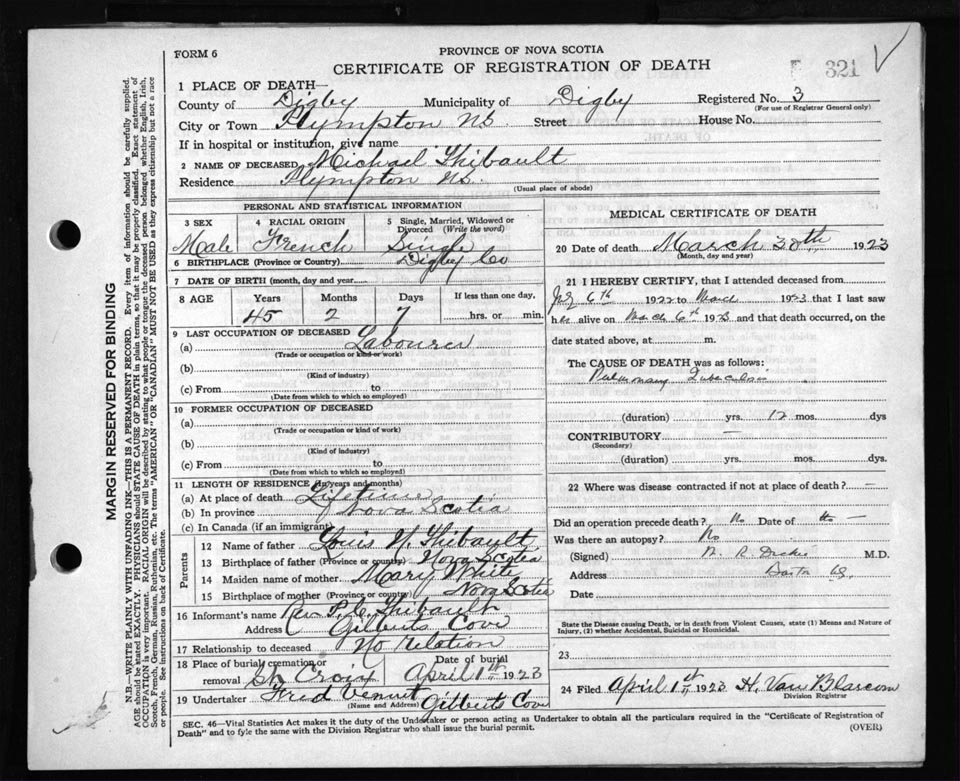 FORM 6
PROVINCE OF NOVA SCOTIA
CERTIFICATE OF REGISTRATION OF DEATH
321
1 PLACE OF DEATH—
County of Digby Municipality of Digby Registered No. 3
(For use of Registrar General only)
City or Town Plympton N.S. Street House No.
If in hospital or institution, give name
2 NAME OF DECEASED Michael Thibault
Residence Plympton N.S.
(Usual place of abode)
PERSONAL AND STATISTICAL INFORMATION
3 SEX 4 RACIAL ORIGIN 5 Single, Married, Widowed or Divorced (Write the word)
Male French Single
6 BIRTHPLACE (Province or Country) Digby Co
7 DATE OF BIRTH (month, day and year)
8 AGE Years Months Days If less than one day,
45 2 7 hrs. or min.
9 LAST OCCUPATION OF DECEASED
(a) Labourer
(Trade or occupation or kind or work)
(b)
(Kind of industry)
(c) From to
(Date from which to which so employed)
10 FORMER OCCUPATION OF DECEASED
(a)
(Trade or occupation or kind of work)
(b)
(Kind of industry)
(c) From to
(Date from which to which so employed)
11 LENGTH OF RESIDENCE (in years and months)
(a) At place of death Lifetime
(b) In province Nova Scotia
(c) In Canada (if an immigrant)
Parents
12 Name of father Louis N. Thibault
13 Birthplace of father (Province or country) Nova Scotia
14 Maiden name of mother Mary White
15 Birthplace of mother (Province or country) Nova Scotia
16 Informant's name Rev P. C. Thibault
Address Gilberts Cove
17 Relationship to deceased No Relation
18 Place of burial, cremation or removal St Croix Date of burial April 1st 1923
19 Undertaker Fred Gilberts Cove
(Name and Address)
MEDICAL CERTIFICATE OF DEATH
20 Date of death March 30th 1923
(Month, day and year)
21 I HEREBY CERTIFY, that I attended deceased from
6th 1922 to March 1923 that I last saw
alive on March 6th 1923 and that death occurred, on the
date stated above, at m.
The CAUSE OF DEATH was as follows:
Pulmonary
(duration) yrs. 12 mos. dys
CONTRIBUTORY —
(Secondary)
(duration) yrs. mos. dys.
22 Where was disease contracted if not at place of death? —
Did an operation precede death? No Date of —
Was there an autopsy? No
(Signed) M.D.
Address
Date
State the Disease causing Death, or in death from Violent Causes, state (1) Means and Nature of Injury, (2) whether Accidental, Suicidal or Homicidal.
23
24 Filed April 1st 1923 H. Van Blarcom
Division Registrar
SEC. 46—Vital Statistics Act makes it the duty of the Undertaker or person acting as Undertaker to obtain all the particulars required in the "Certificate of Registration of
Death" and to fyle the same with the Division Registrar who shall issue the burial permit. (OVER)
MARGIN RESERVED FOR BINDING
N.B.—WRITE PLAINLY WITH UNFADING INK—THIS IS A PERMANENT RECORD. Every item of information should be carefully supplied.
AGE should be stated EXACTLY. PHYSICIANS should STATE CAUSE OF DEATH in plain terms, so that it may be properly classified. Exact statement of
OCCUPATION is very important. RACIAL ORIGIN will be described by stating to what people or tongue the deceased person belonged whether English, Irish,
Scotch, French, German, Russian, Ruthenian, etc. The terms "AMERICAN" OR "CANADIAN" MUST NOT BE USED as they express citizenship but not a race
or people. See instructions on back of Certificate.